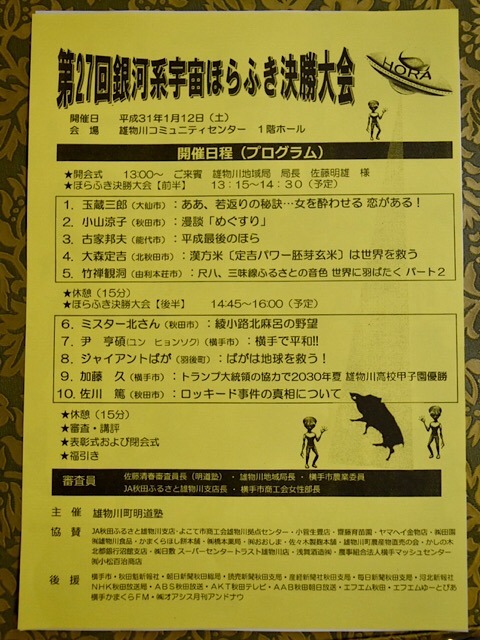 第27回銀河系宇宙ほらふき決勝大会
HORA
開催日 平成31年1月12日(土)
会 場 雄物川コミュニティセンター 1階ホール
開催日程(プログラム)
★開会式 13:00~ ご来賓 雄物川地域局 局長 佐藤明雄 様
★ほらふき決勝大会【前半】 13:15~14:30(予定)
1. 玉蔵三郎(大仙市):ああ、若返りの秘訣…女を酔わせる 恋がある!
2. 小山涼子(秋田市):漫談「めぐすり」
3. 古家邦夫(能代市):平成最後のほら
4. 大森定吉(北秋田市):漢方米〔定吉パワー胚芽玄米〕は世界を救う
5. 竹禅観洞(由利本荘市):尺八、三味線ふるさとの音色 世界に羽ばたく パート2
★休憩(15分)
★ほらふき決勝大会【後半】 14:45~16:00(予定)
6. ミスター北さん(秋田市):綾小路北麻呂の野望
7. 尹 亨碩(ユン ヒョンソク)(横手市):横手で平和!!
8. ジャイアントばが(羽後町):ばがは地球を救う!
9. 加藤 久(横手市):トランプ大統領の協力で2030年夏 雄物川高校甲子園優勝
10. 佐川 篤(秋田市):ロッキード事件の真相について
★休憩(15分)
★審査・講評
★表彰式および閉会式
★福引き
審査員 佐藤清春審査員長(明道塾)・雄物川地域局長・横手市農業委員
JA秋田ふるさと雄物川支店長・横手市商工会女性部長
主 催 雄物川町明道塾
協 賛 JA秋田ふるさと雄物川支店・よこて市商工会雄物川拠点センター・小菅生豊店・齋藤育苗園・ヤマヘイ金物店・㈱田園
㈱雄物川食品・かまくらほし餅本舗・㈱橋本薬局・㈱おおしま・佐々木製麹本舗・雄物川町農産物直売の会・かしの木
北都銀行沼館支店・㈱日敷 スーパーセンタートラスト雄物川店・浅舞酒造㈱・農事組合法人横手マッシュセンター
㈲小松百治商店
後 援 横手市・秋田魁新報社・朝日新聞秋田総局・読売新聞秋田支局・産経新聞社秋田支局・毎日新聞秋田支局・河北新報社
NHK秋田放送局・ABS秋田放送・AKT秋田テレビ・AAB秋田朝日放送・エフエム秋田・エフエムゆーとぴあ
横手かまくらFM・㈱オアシス月刊アンドナウ